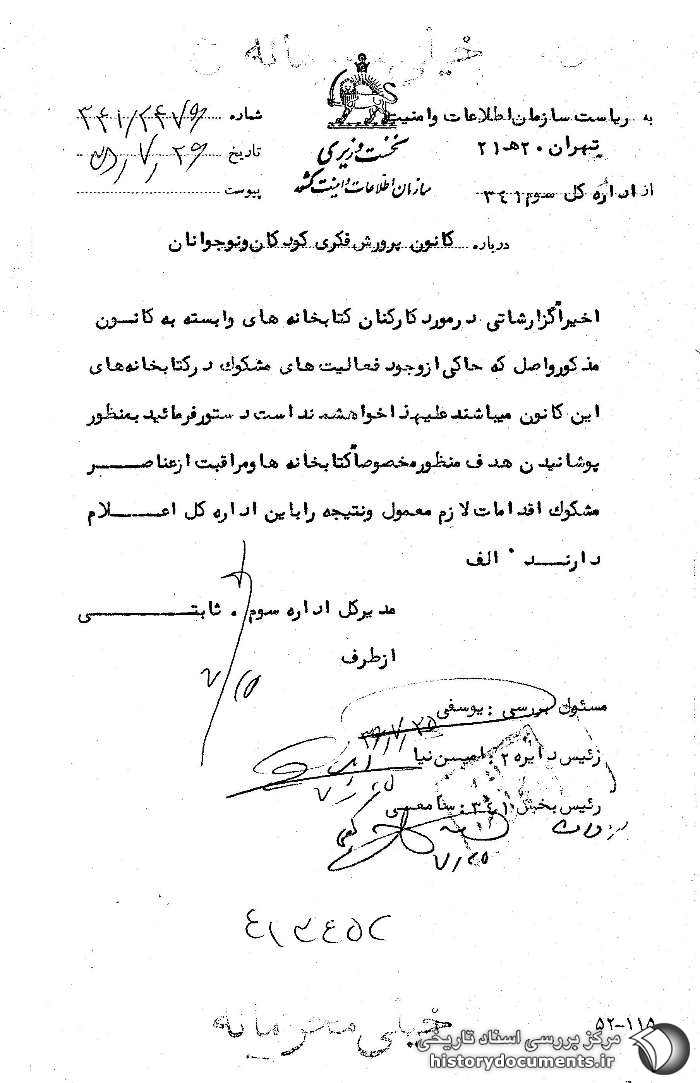 خیلی محرمانه
به ریاست سازمان اطلاعات و امنیت
تهران ۲۰ هـ ۲۱
از اداره کل سوم ۳۴۱
نخست وزیری
سازمان اطلاعات و امنیت کشور
شماره
تاریخ
پیوست
درباره کانون پرورش فکری کودکان ونوجوانان
اخیراً گزارشاتی درمورد کارکنان کتابخانه های وابسته به کانون
مذکور واصل که حاکی ازوجود فعالیت های مشکوک درکتابخانه‌های
این کانون میباشند علیهذا خواهشمند است دستور فرمائید بمنظور
پوشانیدن هدف منظوره مخصوصاً کتابخانه ها ومراقبت ازعناصر
مشکوک اقدامات لازم معمول ونتیجه را باین اداره کل اعلام
دارند . الف
مدیرکل اداره سوم . ثابتی
ازطرف
مسئول بررسی : یوسفی
رئیس دایره ۲ : امیسن نیا
رئیس بخش ۳۴۱ :
۷/۲۵
خیلی محرمانه
۵۲-۱۱۵
مرکز بررسی اسناد تاریخی
historydocuments.ir